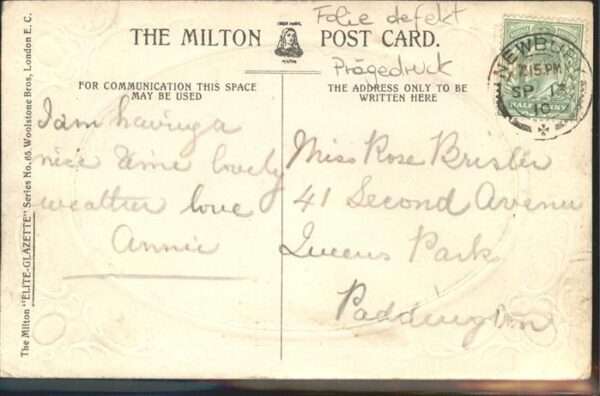 Folie defekt
THE MILTON POST CARD.
Prägedruck
FOR COMMUNICATION THIS SPACE
MAY BE USED
THE ADDRESS ONLY TO BE
WRITTEN HERE
I am having a
nice time lovely
weather love
Annie
Miss Rose Brisley
41 Second Avenue
Queens Park
Paddington
NEWBURY
7.15 PM
SP 13
10
HALFPENNY
The Milton "ELITE-GLAZETTE" Series No. 65 Woolstone Bros, London E. C.